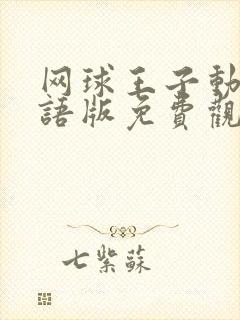 网球王子動
語版免費觀
七紫蘇